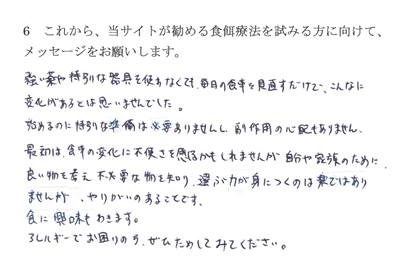 6　これから、当サイトが勧める食餌療法を試みる方に向けて、
メッセージをお願いします。
強い薬や特別な器具を使わなくても、毎日の食事を見直すだけで、こんなに
変化があるとは思いませんでした。
始めるのに特別な準備は必要ありませんし、副作用の心配もありません。
最初は、食事の変化に不便さを感じるかもしれませんが 自分や家族のために
良い物を考え 不必要な物を知り、選ぶ力が身につくのは 楽ではあり
ませんが、やりがいのあることです。
食に興味もわきます。
アレルギーでお困りの方、ぜひためしてみてください。